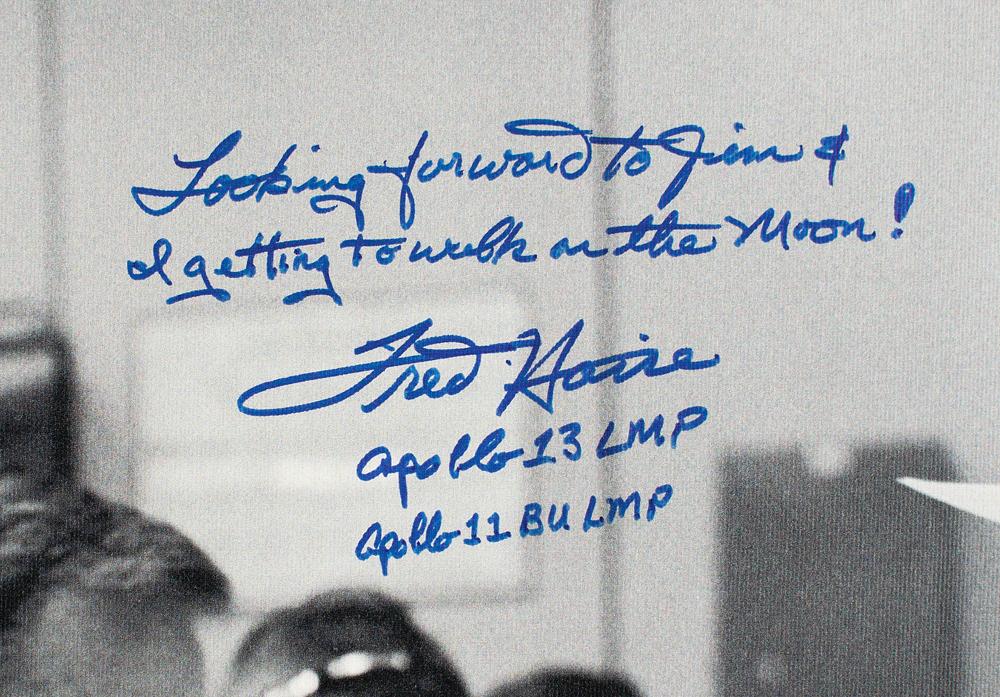 Looking forward to Jim &
I getting to walk on the Moon!
Fred Haise
Apollo 13 LMP
Apollo 11 BU LMP